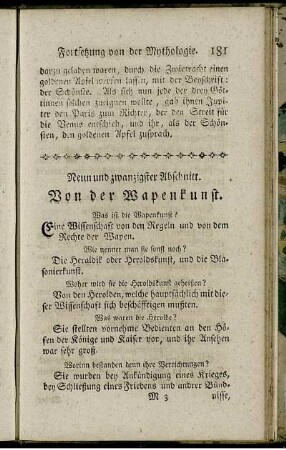 Fortsetzung von der Mythologie. 181
darzu geladen waren, durch die Zwietracht einen
goldenen Apfel werfen lassen, mit der Beyschrift:
der Schönste. Als sich nun jede der drey Göt-
tinnen solchen zueignen wollte, gab ihnen Jupi-
ter den Paris zum Richter, der den Streit für
die Venus entschied, und ihr, als der Schön-
sten, den goldenen Apfel zusprach.
Neun und zwanzigster Abschnitt.
Von der Wapenkunst.
Was ist die Wapenkunst?
Eine Wissenschaft von den Regeln und von dem
Rechte der Wapen.
Wie nennet man sie sonst noch?
Die Heraldik oder Heroldskunst, und die Bla-
sonierkunst.
Woher wird sie die Heroldskunst geheißen?
Von den Herolden, welche hauptsächlich mit die-
ser Wissenschaft sich beschäfftigen mußten.
Was waren die Herolde?
Sie stellten vornehme Bedienten an den Hö-
fen der Könige und Kaiser vor, und ihr Ansehen
war sehr groß.
Worinn bestanden denn ihre Verrichtungen?
Sie wurden bey Ankündigung eines Krieges,
bey Schließung eines Friedens und andrer Bünd-
M 3 nisse,